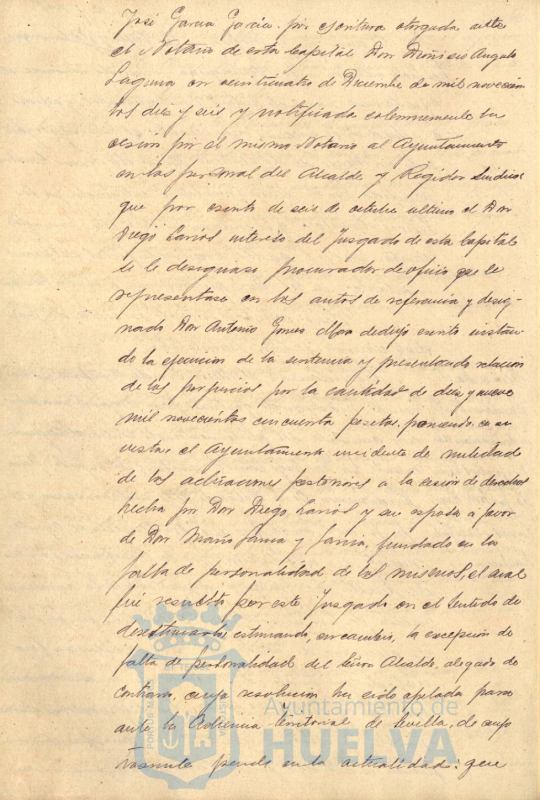 José García García, por escritura otorgada ante
el Notario de esta Capital Don Dionisio Angulo
Laguna en veinticuatro de Diciembre de mil novecien
tos diez y seis y notificada solemnemente la
cesión por el mismo Notario al Ayuntamiento
en las personas del Alcalde y Regidor Sindico:
que por escrito de seis de octubre ultimo el Don
Diego Larios intereso del Juzgado de esta Capital
se le designase procurador de oficio que le
representase en los autos de referencia y desig-
nado Don Antonio Gomez Mora dedujo escrito instan-
do la ejecucion de la sentencia y presentando relacion
de los perjuicios por la cantidad de diez y nueve
mil novecientas cincuenta pesetas, poniendo en su
vista el Ayuntamiento incidente de nulidad
de las actuaciones posteriores a la cesion de derechos
hecha por Don Diego Larios y su esposa a favor
de Don García y García, fundado en la
falta de personalidad de los mismos, el cual
fué resuelto por este Juzgado en el sentido de
desestimarlo, estimando, en cambio, la excepción de
falta de personalidad del Señor Alcalde, alegada de
contrario, cuya resolucion ha sido apelada para
ante la Audiencia territorial de Sevilla, de cuyo
pende en la actualidad: que
Ayuntamiento de
HUELVA